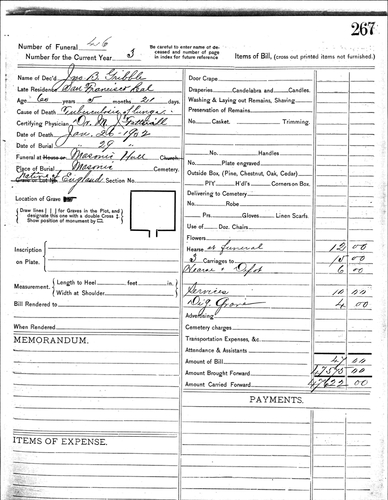 267
Number of Funeral 46
Number for the Current Year 3
Be careful to enter name of deceased and number of page in index for future reference
Items of Bill, (cross out printed items not furnished.)
Name of Dec'd Jno B. Gribble
Late Residence San Francisco Cal
Age 60 years 5 months 21 days.
Cause of Death Tuberculosis Lungs
Certifying Physician Dr. M.
Date of Death Jan. 26 - 1902
Date of Burial " 29 "
Funeral at House or Masonic Hall Church
Place of Burial Masonic Cemetery.
Grave or Lot No. Section No.
Native of England
Location of Grave
Draw lines | | for Graves in the Plot, and designate this one with a double Cross
Show position of monument by
Inscription on Plate.
Measurement. Length to Heel feet in.
Width at Shoulder
Bill Rendered to
When Rendered
MEMORANDUM.
ITEMS OF EXPENSE.
Door Crape
Draperies Candelabra and Candles.
Washing & Laying out Remains, Shaving
Preservation of Remains
No. Casket. Trimming.
No. Handles
Plate engraved
Outside Box, (Pine, Chestnut, Oak, Cedar)
P'l'y H'd'l's Corners on Box.
Delivering to Cemetery
No. Robe
Prs. Gloves Linen Scarfs
Use of Doz. Chairs
Flowers
Hearse at funeral 12 00
3 Carriages to 15 00
Hearse " Depot 6 00
Services 10 00
Dig Grave 4 00
Advertising
Cemetery charges
Transportation Expenses, &c
Attendance & Assistants
Amount of Bill 47 00
Amount Brought Forward 47575 00
Amount Carried Forward 47622 00
PAYMENTS.